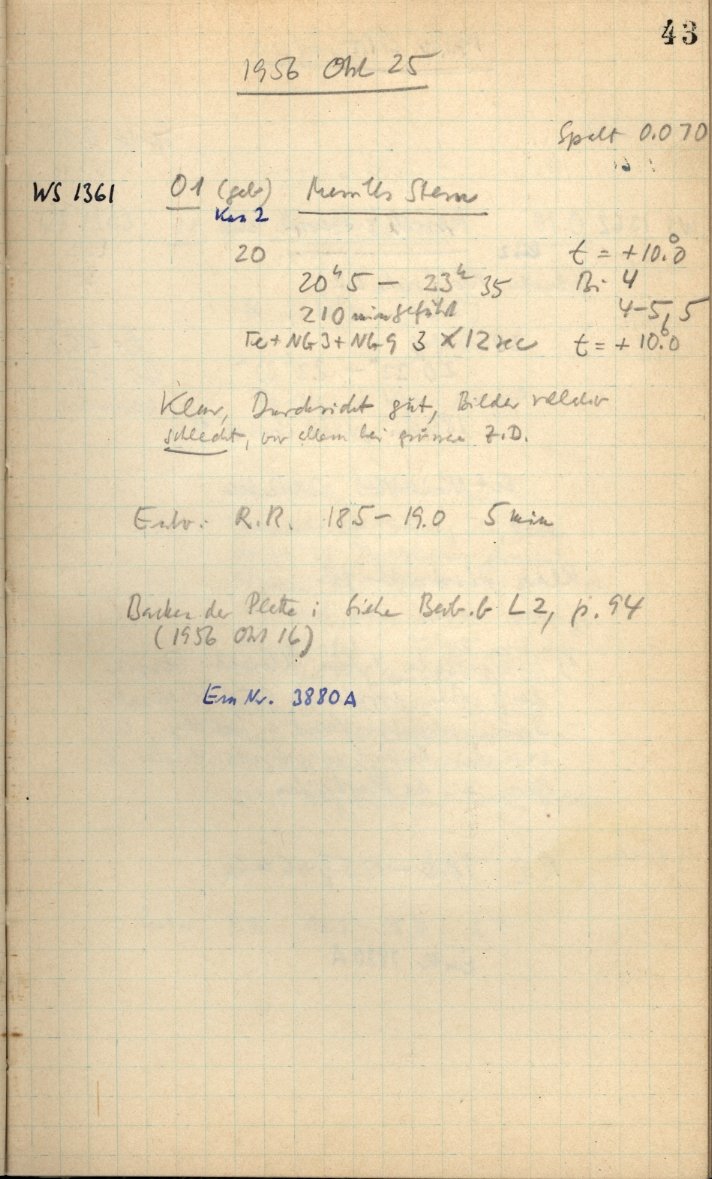 43
1956 Okt 25
Spalt 0.070
WS 1361 O1 (geb) Merrills Stern
Kas 2
20 t = +10.°0
20ʰ5 – 23ʰ35 Bi 4
210 min geführt 4–5,5
Fe + NG3 + NG9 3 × 12 sec t = +10.°0
Klar, Durchsicht gut, Bilder
schlecht, vor allem bei Z.D.
Entw: R.R. 18.5 – 19.0 5 min
Backen der Platte: siehe Beob.b L2, p. 94
(1956 Okt 16)
Em Nr. 3880A